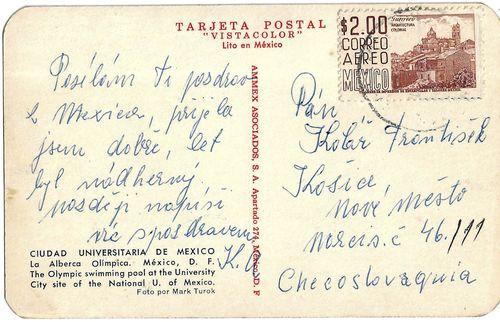 TARJETA POSTAL
"VISTACOLOR"
Lito en México
$2.00
CORREO
AEREO
MÉXICO
Guerrero
ARQUITECTURA
COLONIAL
Posílám Ti pozdrav
z Mexica, přijela
jsem dobře, let
byl nádherný
později napíši
víc s pozdravem
K.
AMMEX ASOCIADOS, S. A. Apartado 274, México, D. F
Pán
Kolář František
Košice
Nové město
čís. 46/11
Checoslovaquia
CIUDAD UNIVERSITARIA DE MEXICO
La Alberca Olímpica. México, D. F.
The Olympic swimming pool at the University
City site of the National U. of Mexico.
Foto por Mark Turok